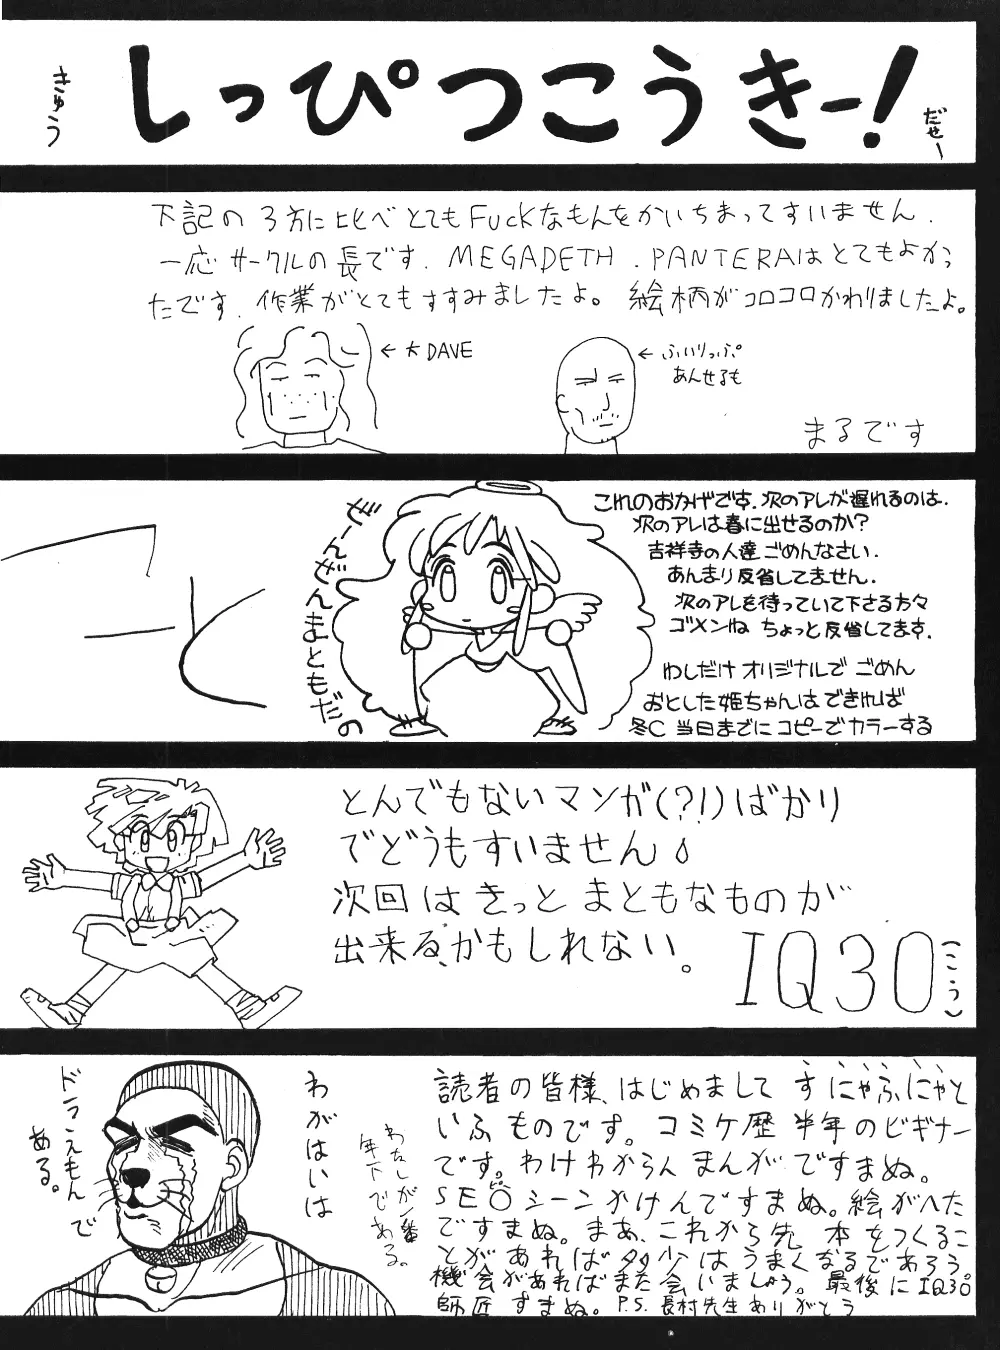 きゅう
しっぴつこうきー!
だぜー
下記の3方に比べとてもFuckなもんをかいちまってすいません.
一応サークルの長です. MEGADETH. PANTERAはとてもよかっ
たです. 作業がとてもすすみましたよ。絵柄がコロコロかわりましたよ。
← 大DAVE
← ふいりっぷ
あんせるも
まるです
ぜーんぜんまともだの
これのおかげです. 次のアレが遅れるのは.
次のアレは春に出せるのか?
吉祥寺の人達ごめんなさい.
あんまり反省してません.
次のアレを待っていて下さる方々
ゴメンね ちょっと反省してます.
わしだけオリジナルで ごめん
おとした姫ちゃんはできれば
冬C 当日までにコピーでカラーする
とんでもないマンガ(?!)ばかり
でどうもすいません
次回はきっとまともなものが
出来る、かもしれない。
IQ30
(こう)
わがはいは
ドラえもんで
ある。
わたしが一番
年下である。
読者の皆様、はじめまして すにゃふにゃと
いふものです。コミケ歴半年のビギナー
です。わけわからんまんがですまぬ。
シーンかけんですまぬ。絵がへた
ですまぬ。まあ、これから先 本をつくるこ
とがあれば多少はうまくなるであろう。
機会があればまた会いましょう。最後にIQ30
師匠すまぬ。P.S. 長村先生ありがとう